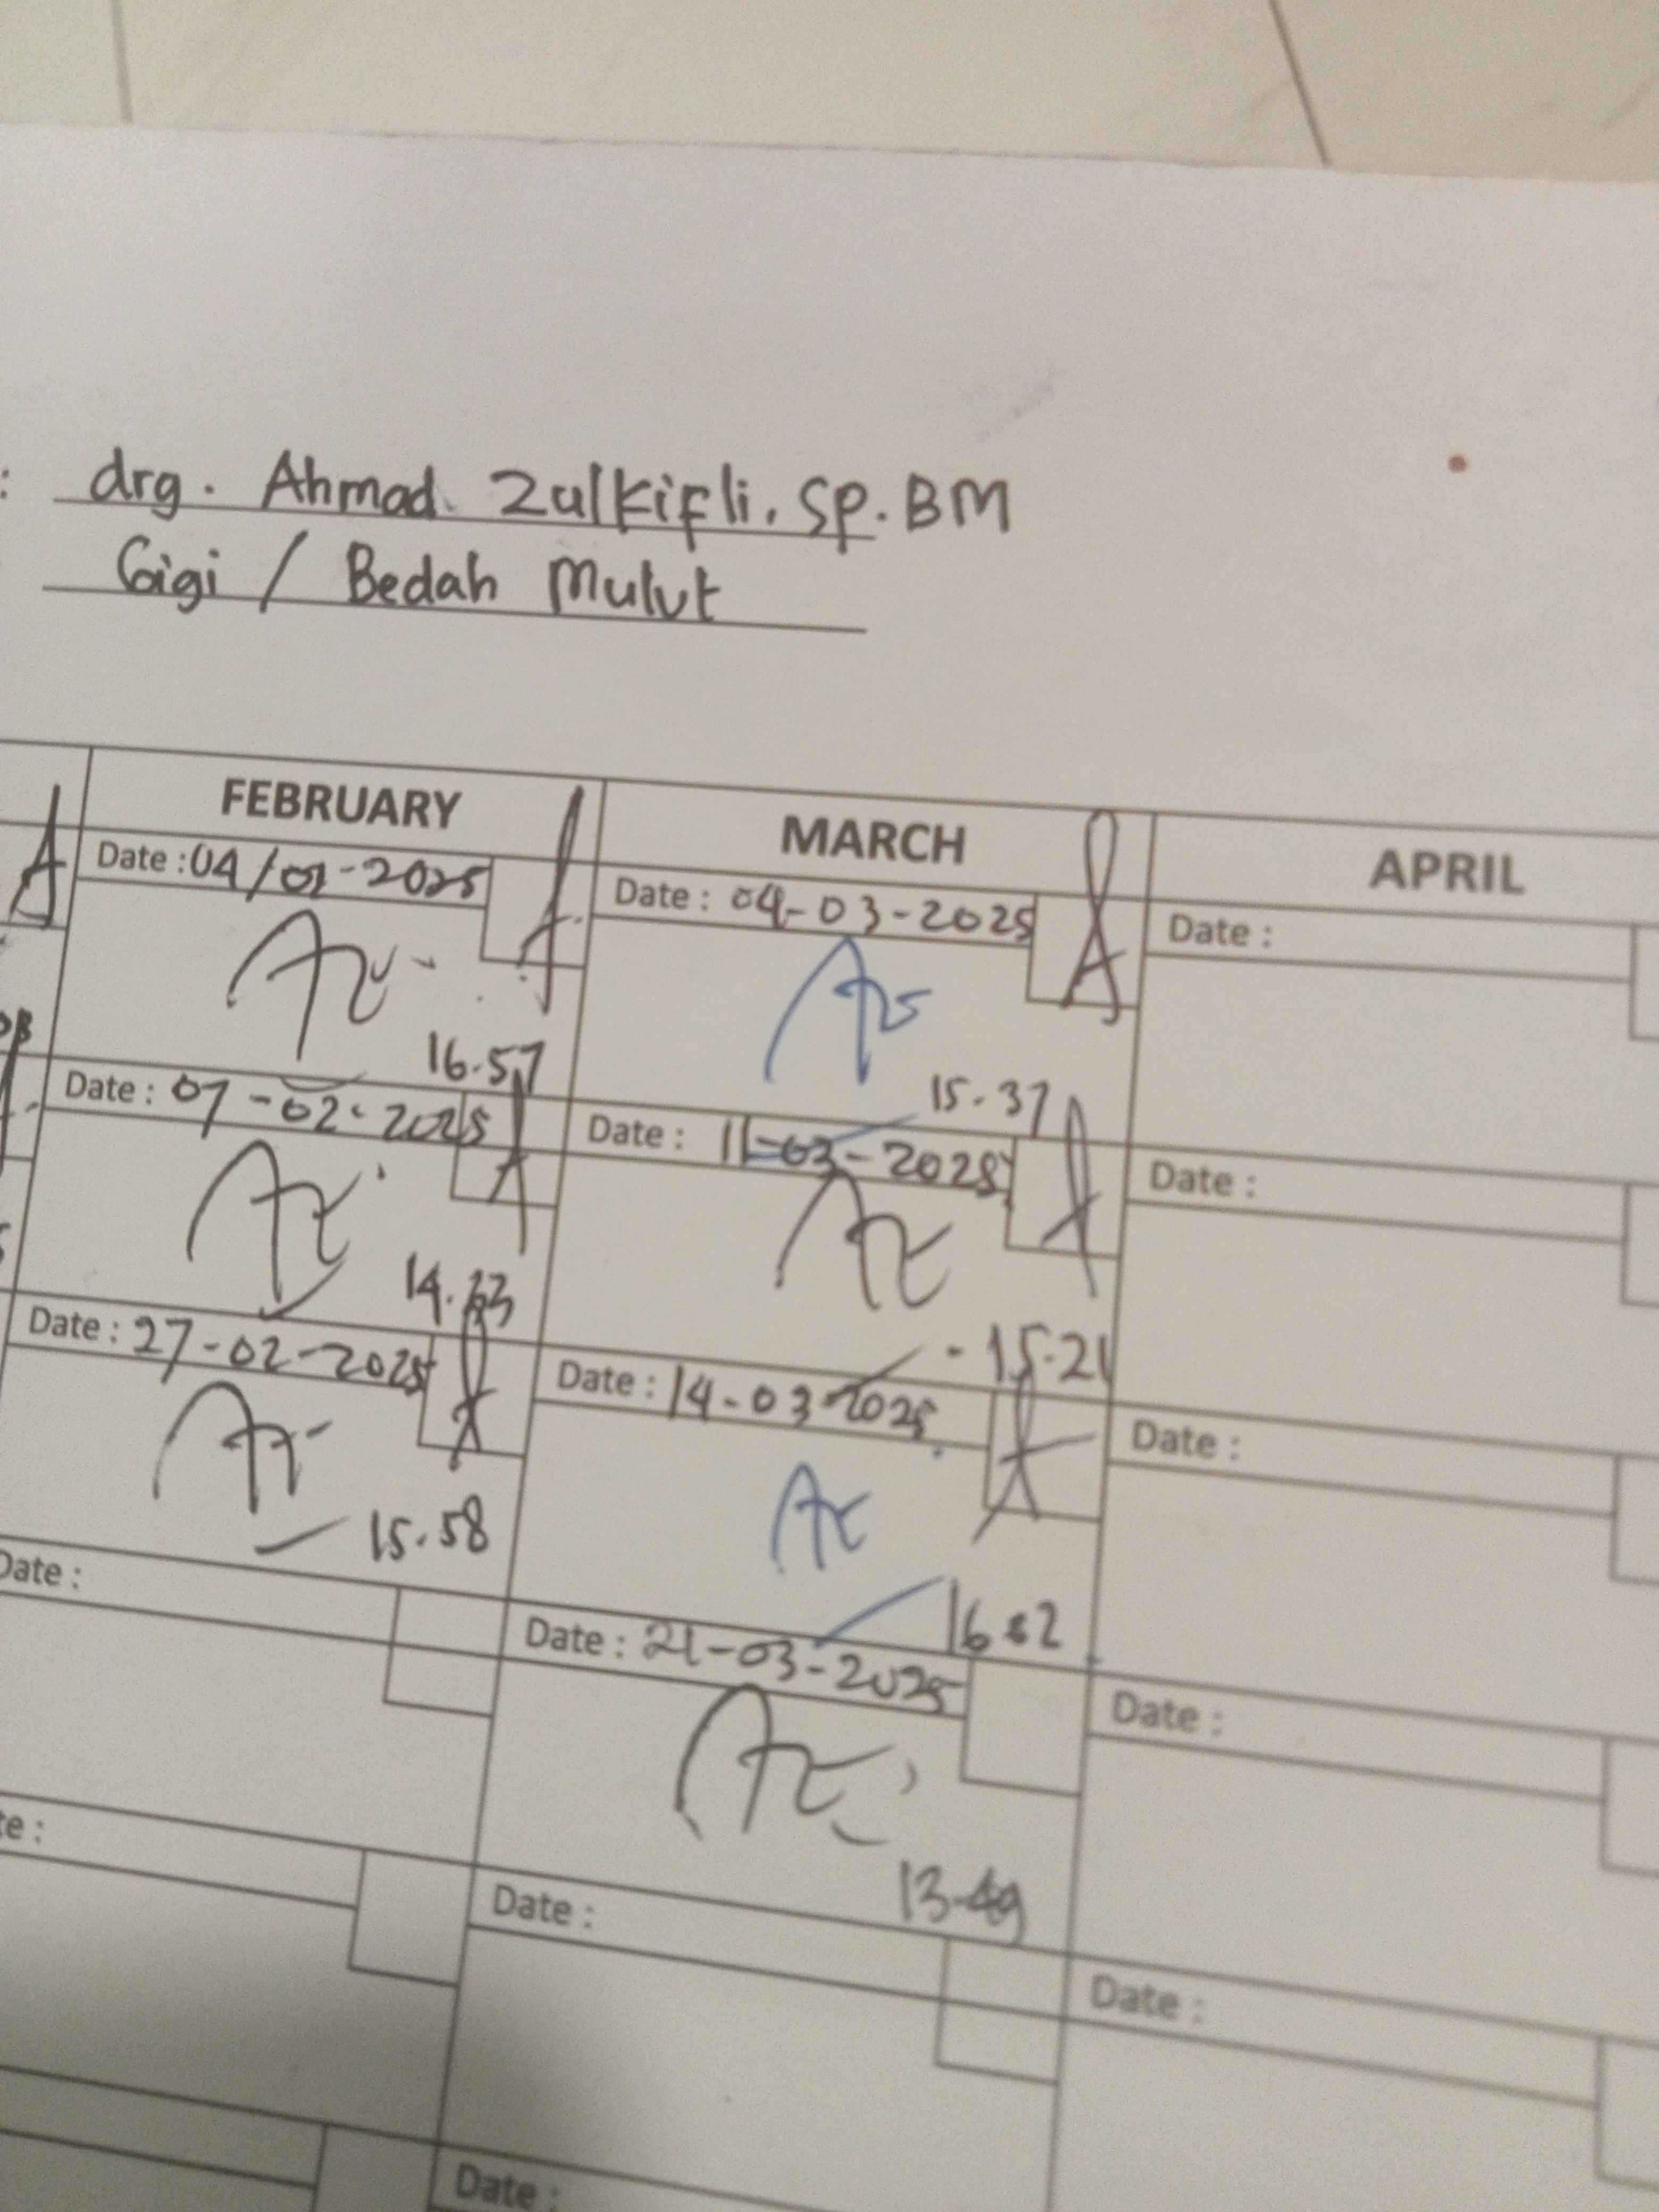 : drg. Ahmad Zulkifli, Sp.BM
Gigi / Bedah Mulut
FEBRUARY MARCH APRIL
Date : 04/02-2025
16.57
Date : 07-02-2025
14.33
Date : 27-02-2025
15.58
Date :
te :
Date : 04-03-2025
15.37
Date : 11-03-2025
15.21
Date : 14-03-2025
16.02
Date : 21-03-2025
13.49
Date :
Date :
Date :
Date :
Date :
Date :
Date :